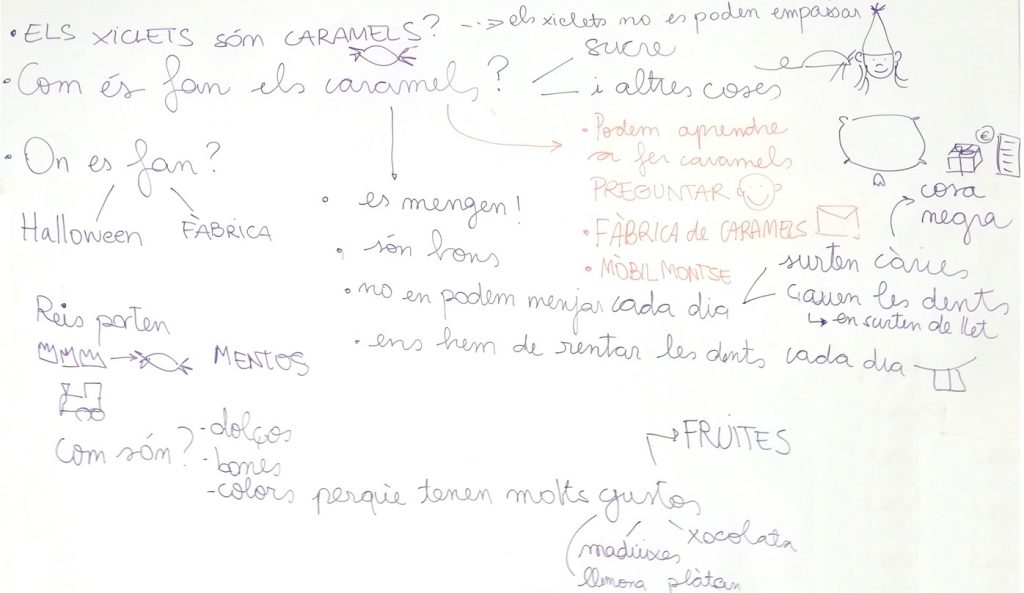 • ELS XICLETS SÓM CARAMELS? --> els xiclets no es poden empassar
• Com és fan els caramels?
sucre
i altres coses
• On es fan?
Halloween
FÀBRICA
• Podem aprendre
a fer caramels
PREGUNTAR
• FÀBRICA de CARAMELS
• MÒBIL MONTSE
€
• es mengen!
• són bons
• no en podem menjar cada dia
surten càries
cosa
negra
cauen les dents
↳ en surten de llet
• ens hem de rentar les dents cada dia
Reis porten
MENTOS
com són?
- dolços
- bones
- colors perquè tenen molts gustos
FRUITES
maduixes
xocolata
llimona plàtan